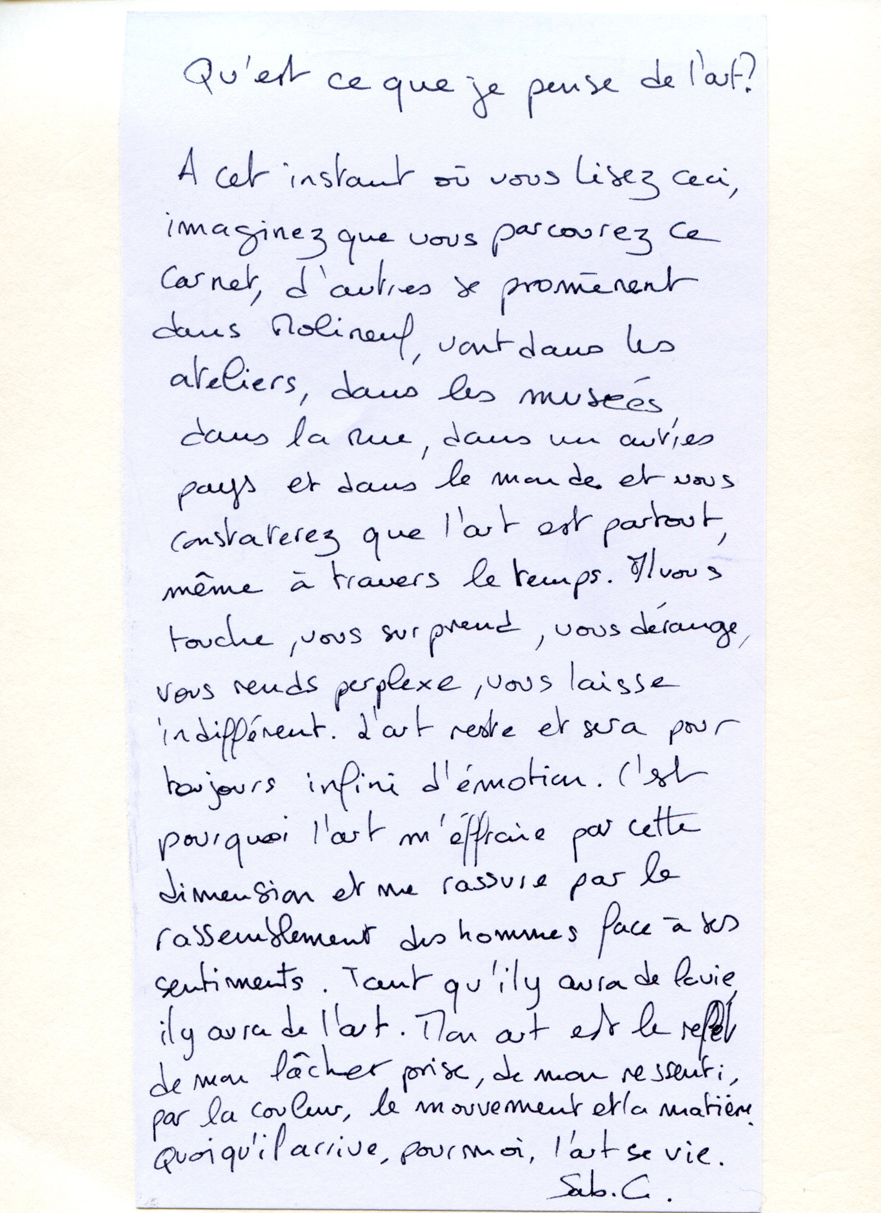 Qu'est ce que je pense de l'art?
A cet instant où vous lisez ceci,
imaginez que vous parcourez ce
carnet, d'autres se promènent
dans Molineuf, vont dans les
ateliers, dans les musées,
dans la rue, dans un autres
pays et dans le monde et vous
constaterez que l'art est partout,
même à travers le temps. Il vous
touche, vous surprend, vous dérange,
vous rends perplexe, vous laisse
indifférent. L'art reste et sera pour
toujours infini d'émotion. C'est
pourquoi l'art m'éffraie par cette
dimension et me rassure par le
rassemblement des hommes face à ses
sentiments. Tant qu'il y aura de la vie,
il y aura de l'art. Mon art est le reflet
de mon lâcher prise, de mon ressenti,
par la couleur, le mouvement et la matière.
Quoiqu'il arrive, pour moi, l'art se vie.
Sab. C.